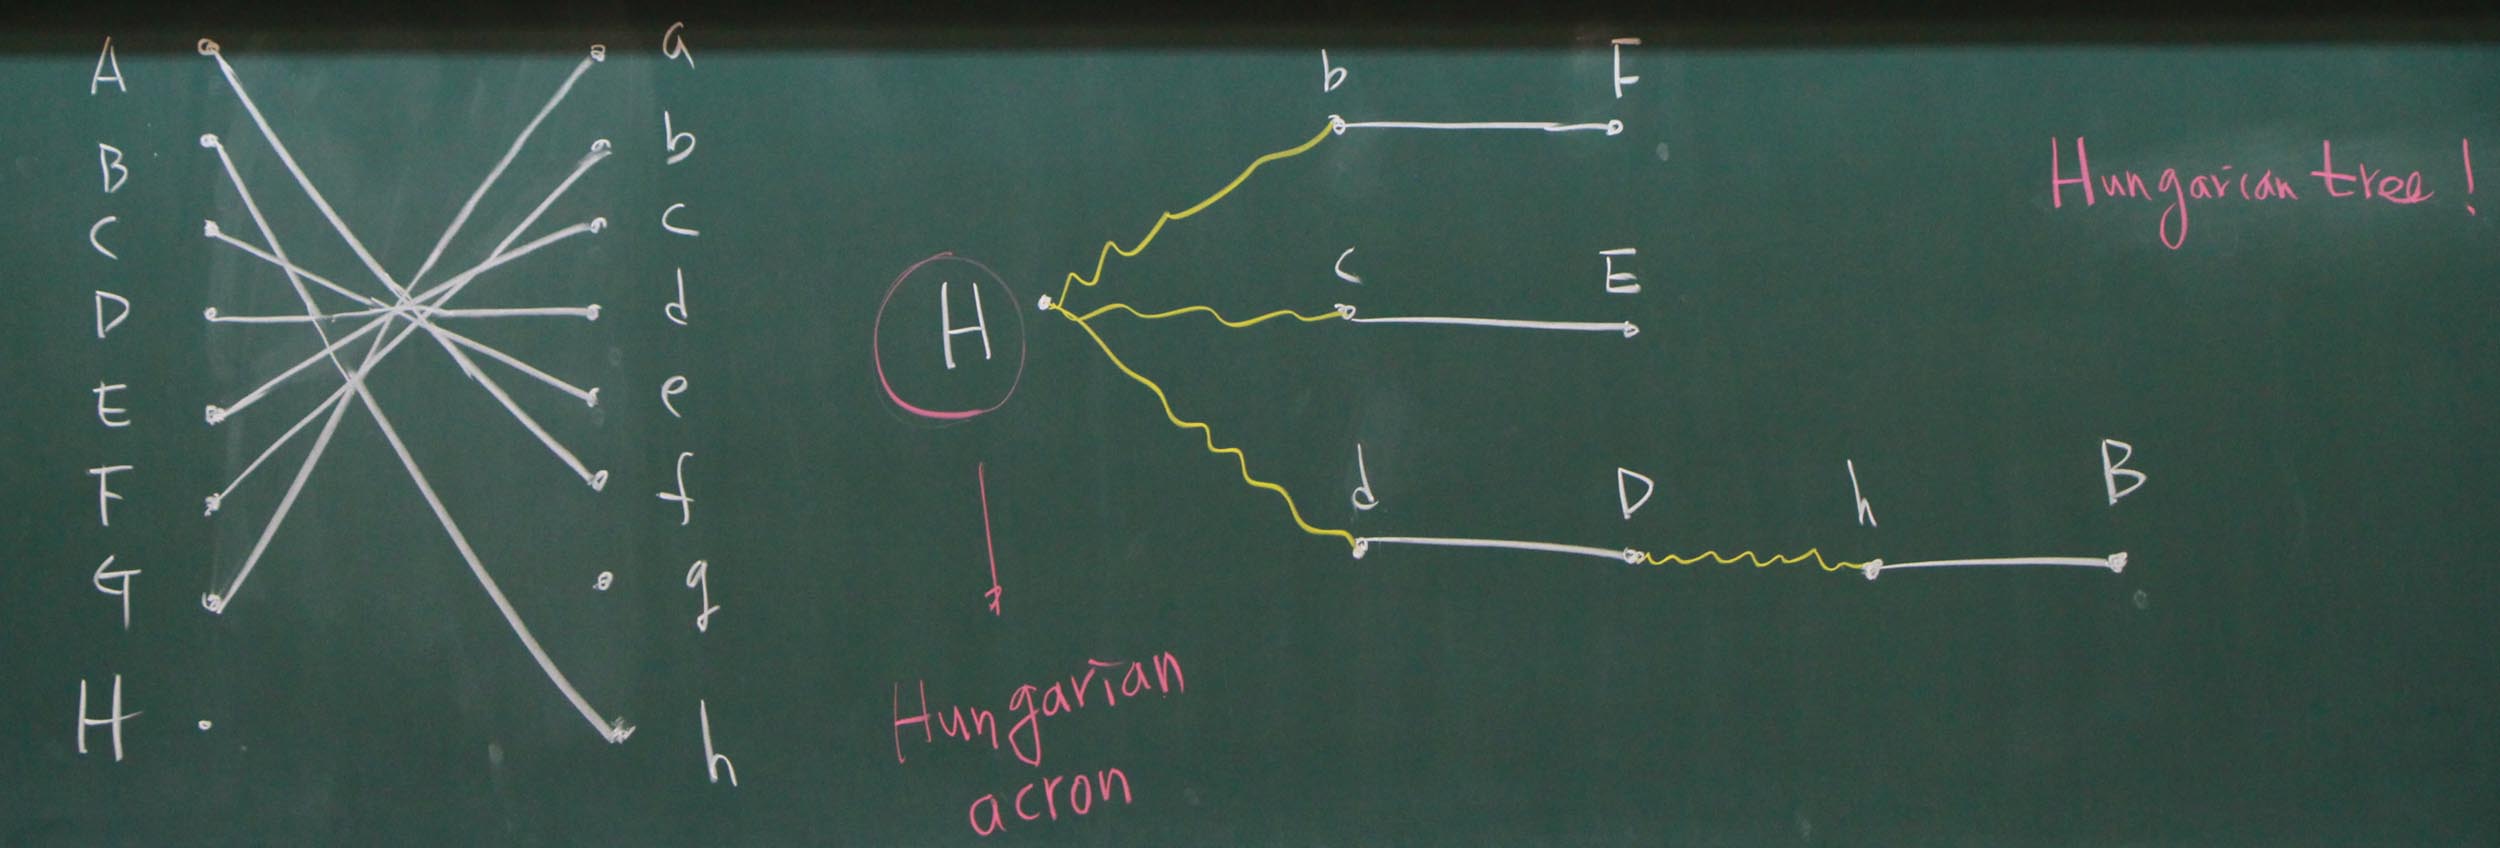 A a
B b
C c
D d
E e
F f
G g
H h
b F
H c E
d D h B
Hungarian tree!
Hungarian
acron